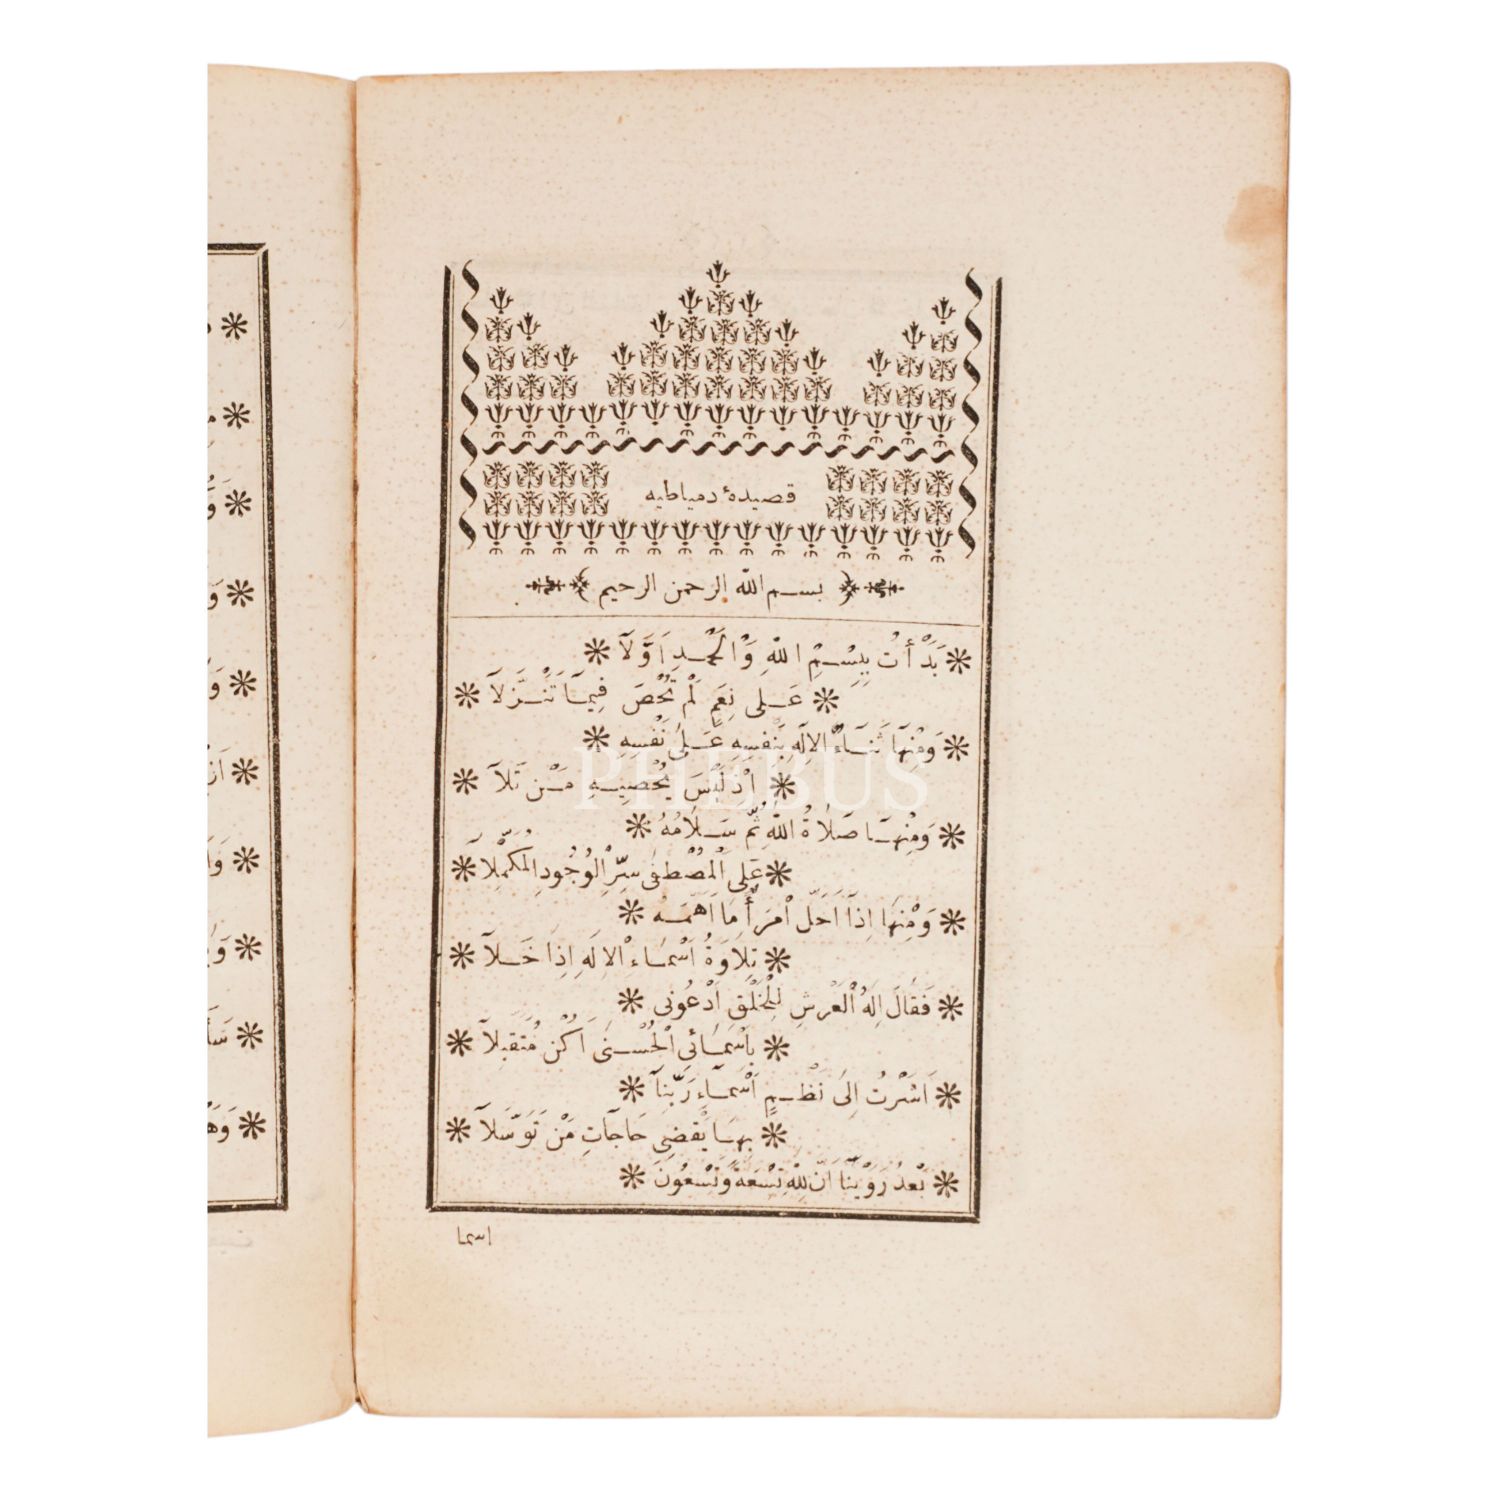 قصيدۀ دمياطيه
بسم الله الرحمن الرحيم
بَدَْأتُ بِبِسْمِ اللهِ وَالْحَمْدِ اَوَّلاَ
عَلى نِعَمٍ لَمْ تُحْصَ فِيمَا تَنَزَّلاَ
وَمِنْهَا ثَنَاءُ الاِلهِ بِنَفْسِهِ عَلىَ نَفْسِهِ
اِذْ لَيْسَ يُحْصِيهِ مَنْ تَلاَ
وَمِنْهَا صَلاَةُ اللهِ ثُمَّ سَلاَمُهُ
عَلَى الْمُصْطَفٰى سِرِّ الْوُجُودِ الْمُكَمَّلاَ
وَمِنْهَا اِذَا اَحَلَّ امْرَأً مَا اَهَمَّهُ
تِلاَوَةُ اَسْمَاءِ الاِلهِ اِذَا خَلاَ
فَقَالَ اِلهُ الْعَرْشِ لِلْخَلْقِ اَدْعُونِى
بِاَسْمَائِى الْحُسْنىَ اَكُنْ مُتَقَبِّلاَ
اَشَرْتُ اِلىَ نَظْمٍ اَسْمَاءِ رَبِّنَا
بِهَا يَقْضِى حَاجَاتِ مَنْ تَوَسَّلاَ
بَعْدُ رَوَيْنَا اَنَّ لِلّٰهِ تِسْعَةً وَتِسْعُونَ
اسما
PHEBUS